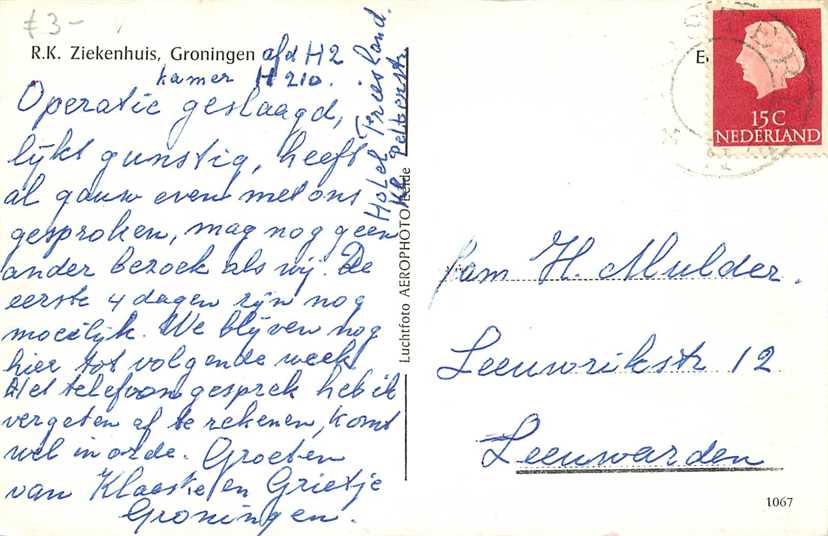 £3-
R.K. Ziekenhuis, Groningen afd H2
kamer H 210.
Operatie geslaagd,
lijkt gunstig, heeft
al gauw even met ons
gesproken, mag nog geen
ander bezoek als wij. De
eerste 4 dagen zijn nog
moeilijk. We blijven nog
hier tot volgende week
Het telefoongesprek heb ik
vergeten af te rekenen, komt
wel in orde. Groeten
van Klaaske en Grietje
Groningen.
Hotel Friesland.
Kl. Pelsterstr
Luchtfoto AEROPHOTO Eelde
15 C
NEDERLAND
Fam H. Mulder.
Leeuwrikstr 12
Leeuwarden
1067